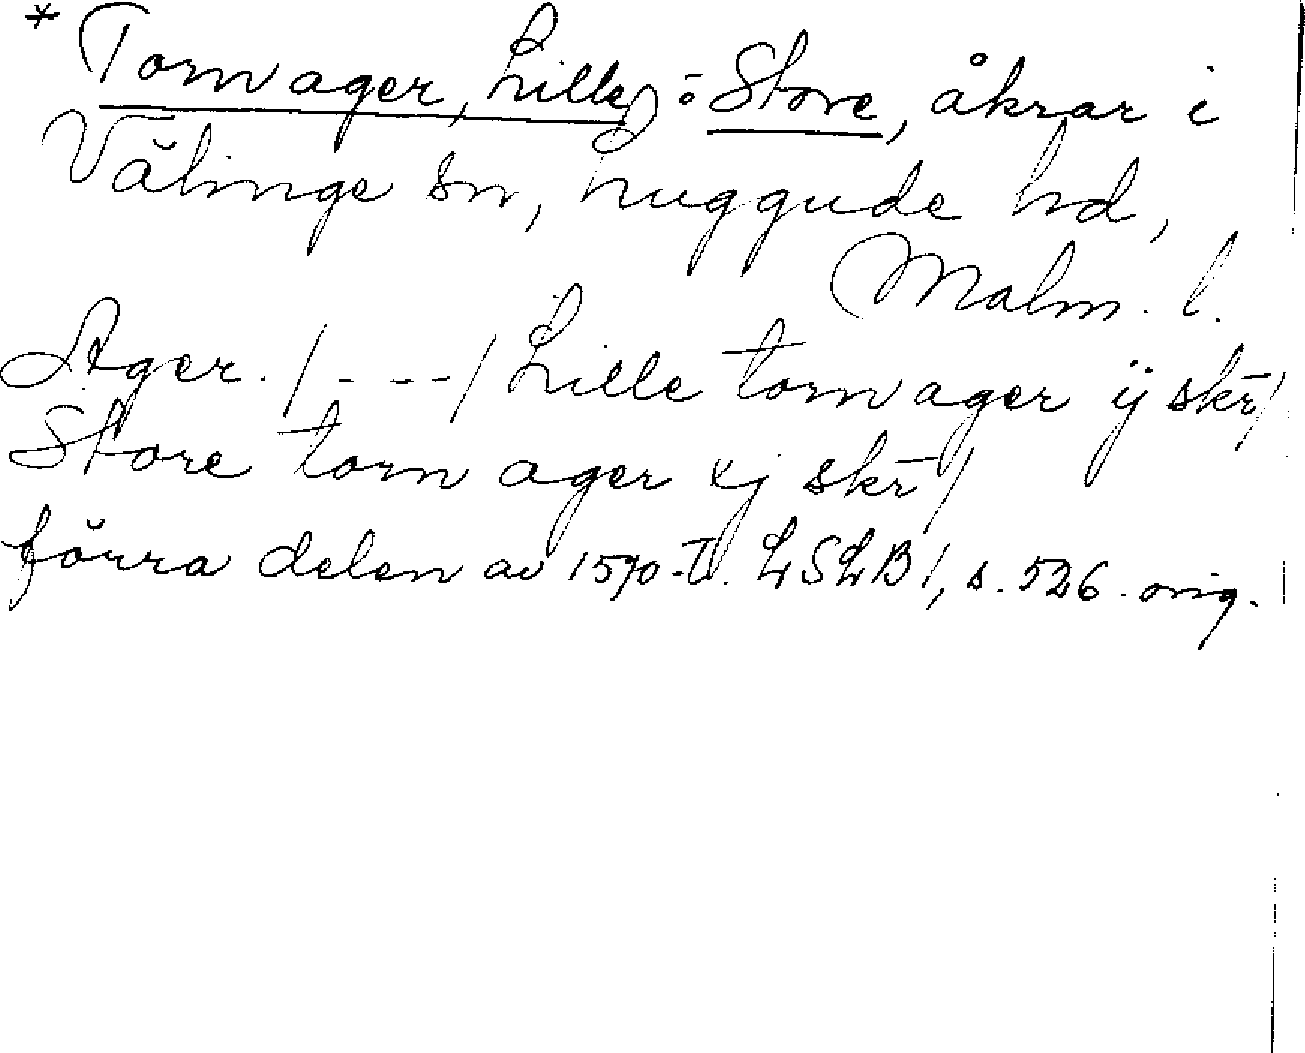 * Tornager, Lille, o Store, åkrar i
Välinge sn, Luggude hd,
Malm. l.
Ager. / - - - / Lille tornager ij skr /
Store torn ager xj skr /
förra delen av 1570-t. LSLB 1, s. 526. orig.